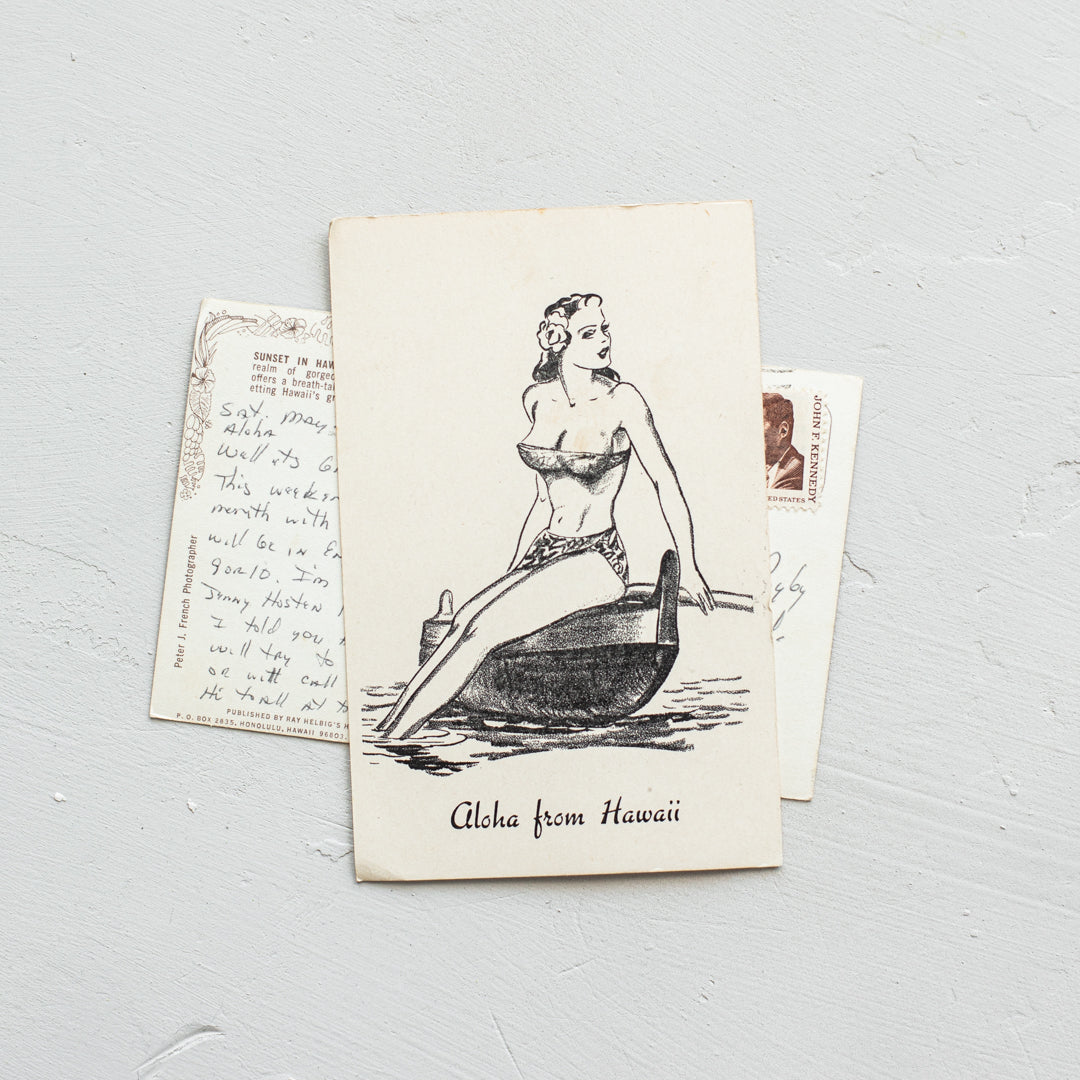 SUNSET IN HAW
realm of gorge
offers a breath-tak
etting Hawaii's g
Sat. May
Aloha
Well its
This weeken
month with
will be in
I'm
Jenny Hosten
I told you
will try to
or will call
Hi to all at
Peter J. French Photographer
PUBLISHED BY RAY HELBIG'S H
P. O. BOX 2835, HONOLULU, HAWAII 96803.
Aloha from Hawaii
JOHN F. KENNEDY
ED STATES